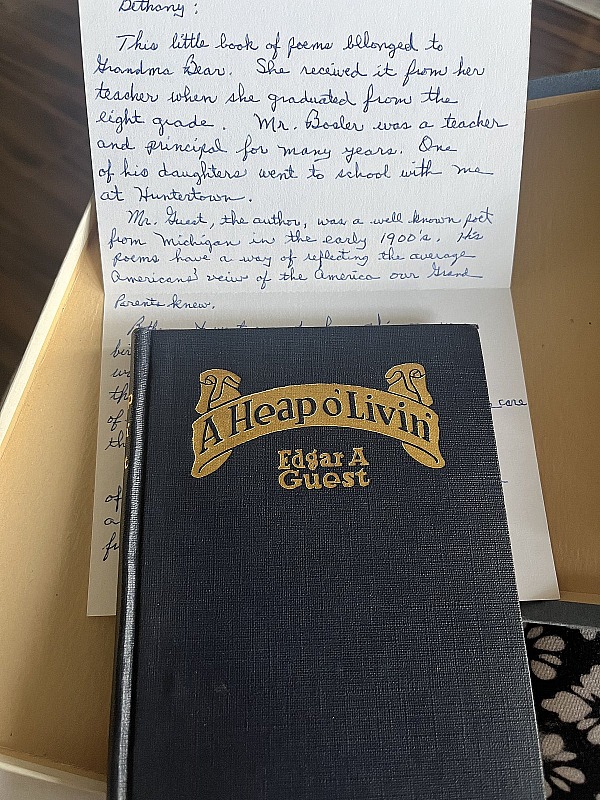 Bethany:
This little book of poems bllonged to
Grandma Bear. She received it from her
teacher when she graduated from the
eight grade. Mr. Bosler was a teacher
and principal for many years. One
of his daughters went to school with me
at Huntertown.
Mr. Guest, the author, was a well known poet
from Michigan in the early 1900's. His
poems have a way of reflecting the average
Americans' veiw of the America our Grand
Parents knew.
care
of
of
A Heap o' Livin'
Edgar A
Guest